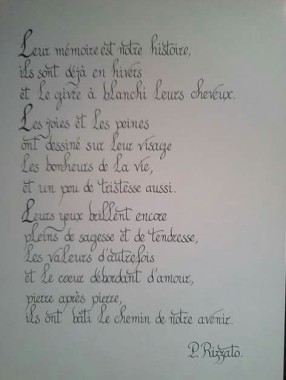 Leur mémoire est notre histoire,
ils sont déjà en hivers
et le givre à blanchi leurs cheveux.
Les joies et les peines
ont dessiné sur leur visage
les bonheurs de la vie,
et un peu de tristesse aussi.
Leurs yeux brillent encore
pleins de sagesse et de tendresse,
les valeurs d'autrefois
et le cœur débordant d'amour,
pierre après pierre,
ils ont bâti le chemin de notre avenir.
P. Rizzato.